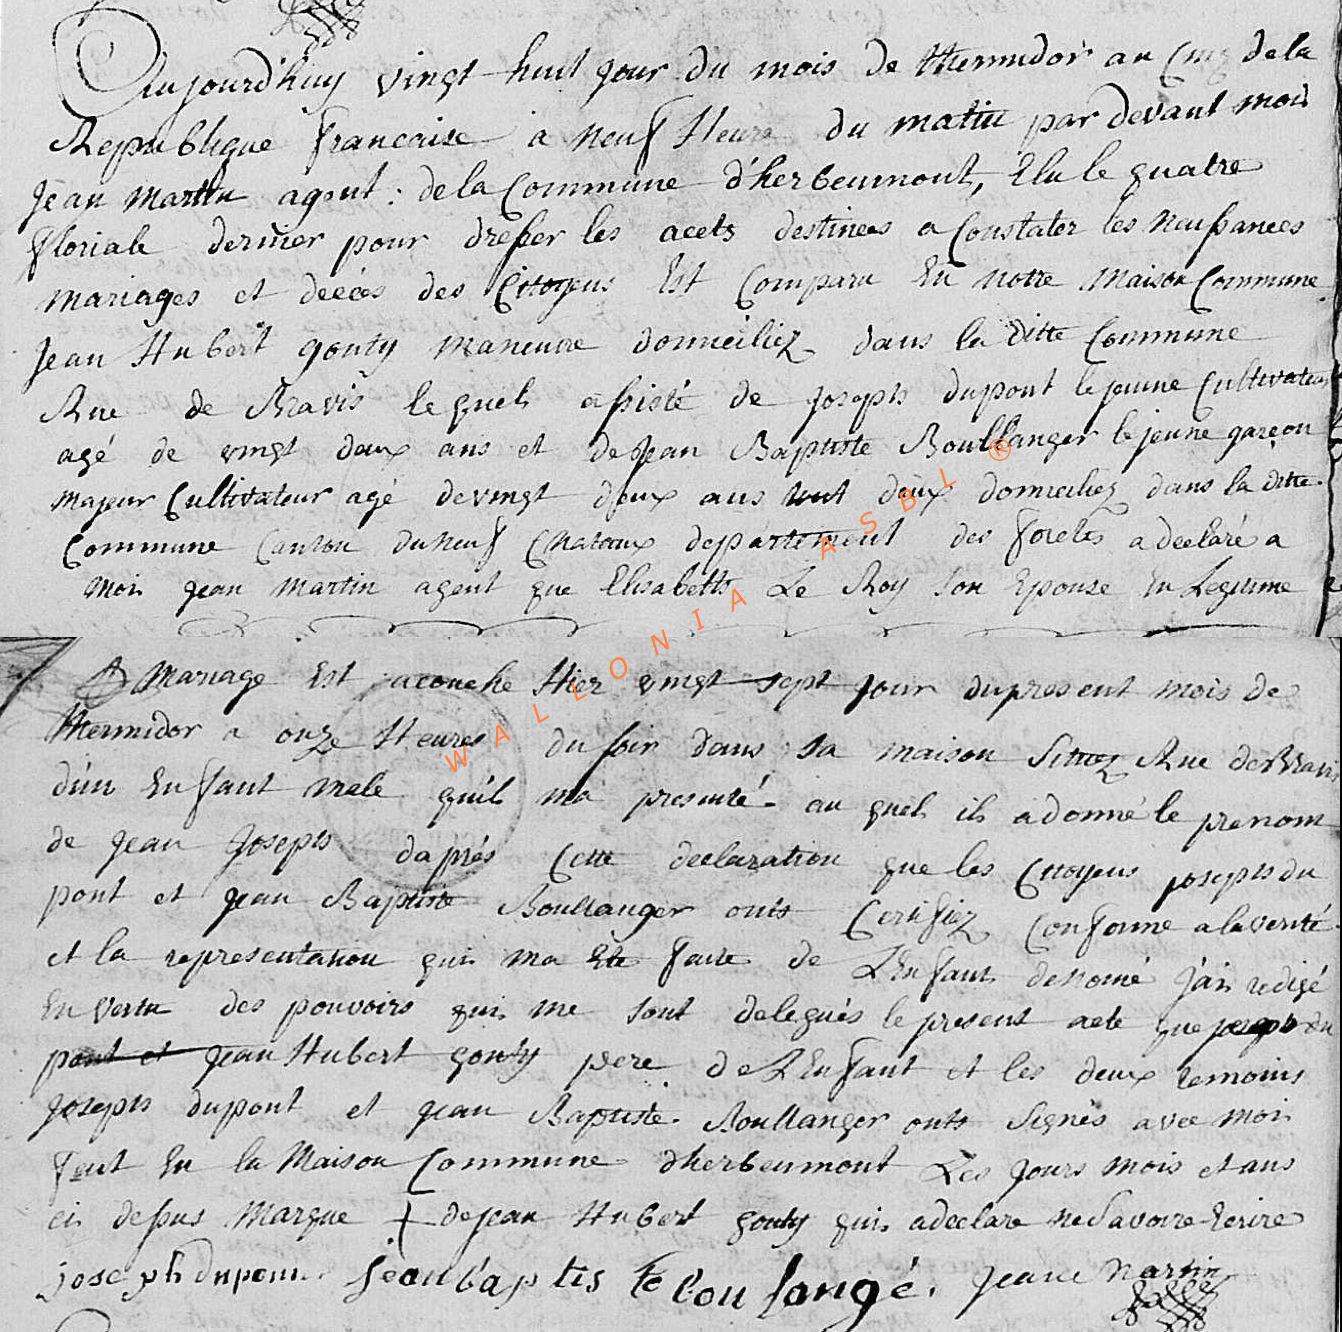 Aujourd'huy vingt huit jour du mois de thermidor an Cinq de la
Republique francaise a neuf Heure du matin par devant moi
Jean Martin agent : de la Commune d'herbeumont, Elu le quatre
floriale dernier pour dresser les acets destinees a Constater les Naissances
mariages et deeces des Citoyens Est Comparu En notre Maison Commune
Jean Hubert gouty maneuvre domiciliez dans la ditte Commune
Rue de Bravis lequels assisté de josephs dupont le jeune Cultivateur
agé de vingt deux ans et de Jean Baptiste Boullanger le jeune garçon
majeur Cultivateur agé de vingt deux ans deux domiciliez dans la ditte
Commune Canton du neuf Chateaux departement des foretes a declaré a
moi jean martin agent que Elisabeths Le Roy son Epouse En Legitime
Mariage Est acouche Hier vingt sept jour du present mois de
thermidor a onze Heures du soir dans sa maison Situez Rue de Bravis
d'un Enfant male quils ma presenté au quels ils a donné le prenom
de jean josephs daprés Cette declaration que les Citoyens josephs du
pont et jean Baptiste Boullanger onts Certifiez Conforme a la verité
et la representation quis ma Ete faite de LEnfants denomé jais redigé
En vertu des pouvoirs quis me sont delegués le present acte que josephs du
pont et jean Hubert gouty pere de LEnfant et les deux temoins
josephs dupont et jean Baptiste Boullanger onts Signés avec moi
fait En la Maison Commune dherbeumont Les jours mois et ans
cis desus marque + de jean Hubert gouty quis a declare ne Savoire Ecrire
joseph dupont jean baptis te boulangé. jeane martin
WALLONIA ASBL ®